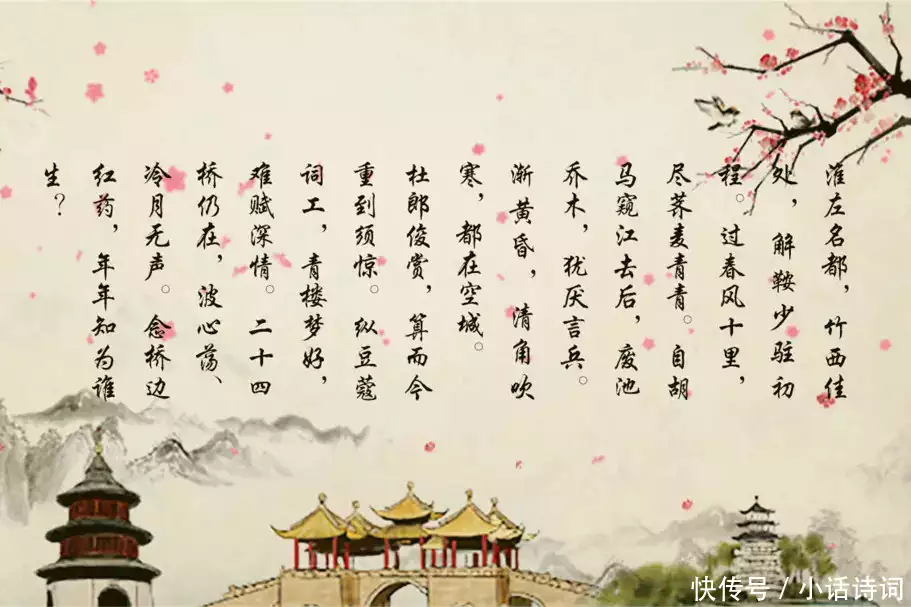 淮左名都，竹西佳
处，解鞍少驻初
程。过春风十里，
尽荠麦青青。自胡
马窥江去后，废池
乔木，犹厌言兵。
渐黄昏，清角吹
寒，都在空城。
杜郎俊赏，算而今
重到须惊。纵豆蔻
词工，青楼梦好，
难赋深情。二十四
桥仍在，波心荡、
冷月无声。念桥边
红药，年年知为谁
生？
快传号 / 小话诗词